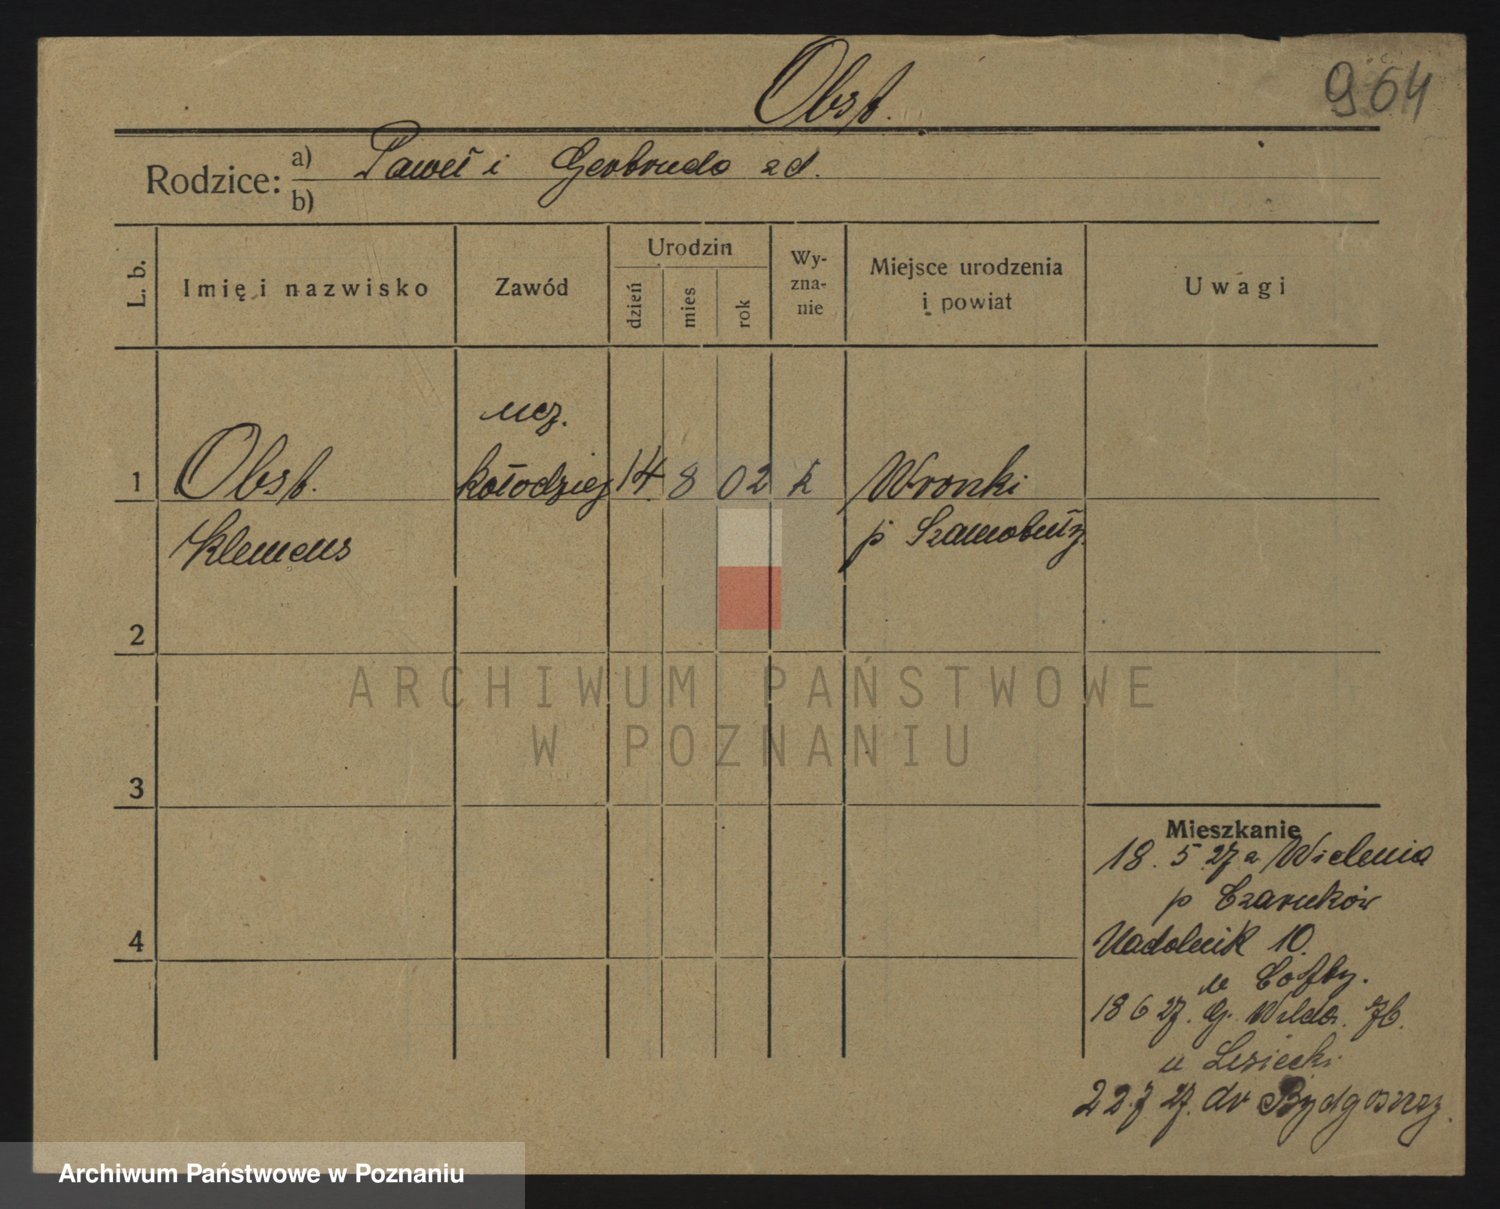 Obst.
964
Rodzice: a) Paweł i Gertruda zd.
b)
L. b.
Imię i nazwisko
Zawód
Urodzin
dzień
mies
rok
Wy-
zna-
nie
Miejsce urodzenia
i powiat
Uwagi
ucz.
1 Obst. kołodziej 14 8 02 k Wronki
Klemens p Szamotuły
2
3
4
Mieszkanie
18. 5 27 z Wielenia
p Czarnków
Nadolnik 10.
u
18 6 27. G. Wilda. 76.
u Lesiecki
22 7 27. do Bydgoszcz.
ARCHIWUM PAŃSTWOWE
W POZNANIU
Archiwum Państwowe w Poznaniu